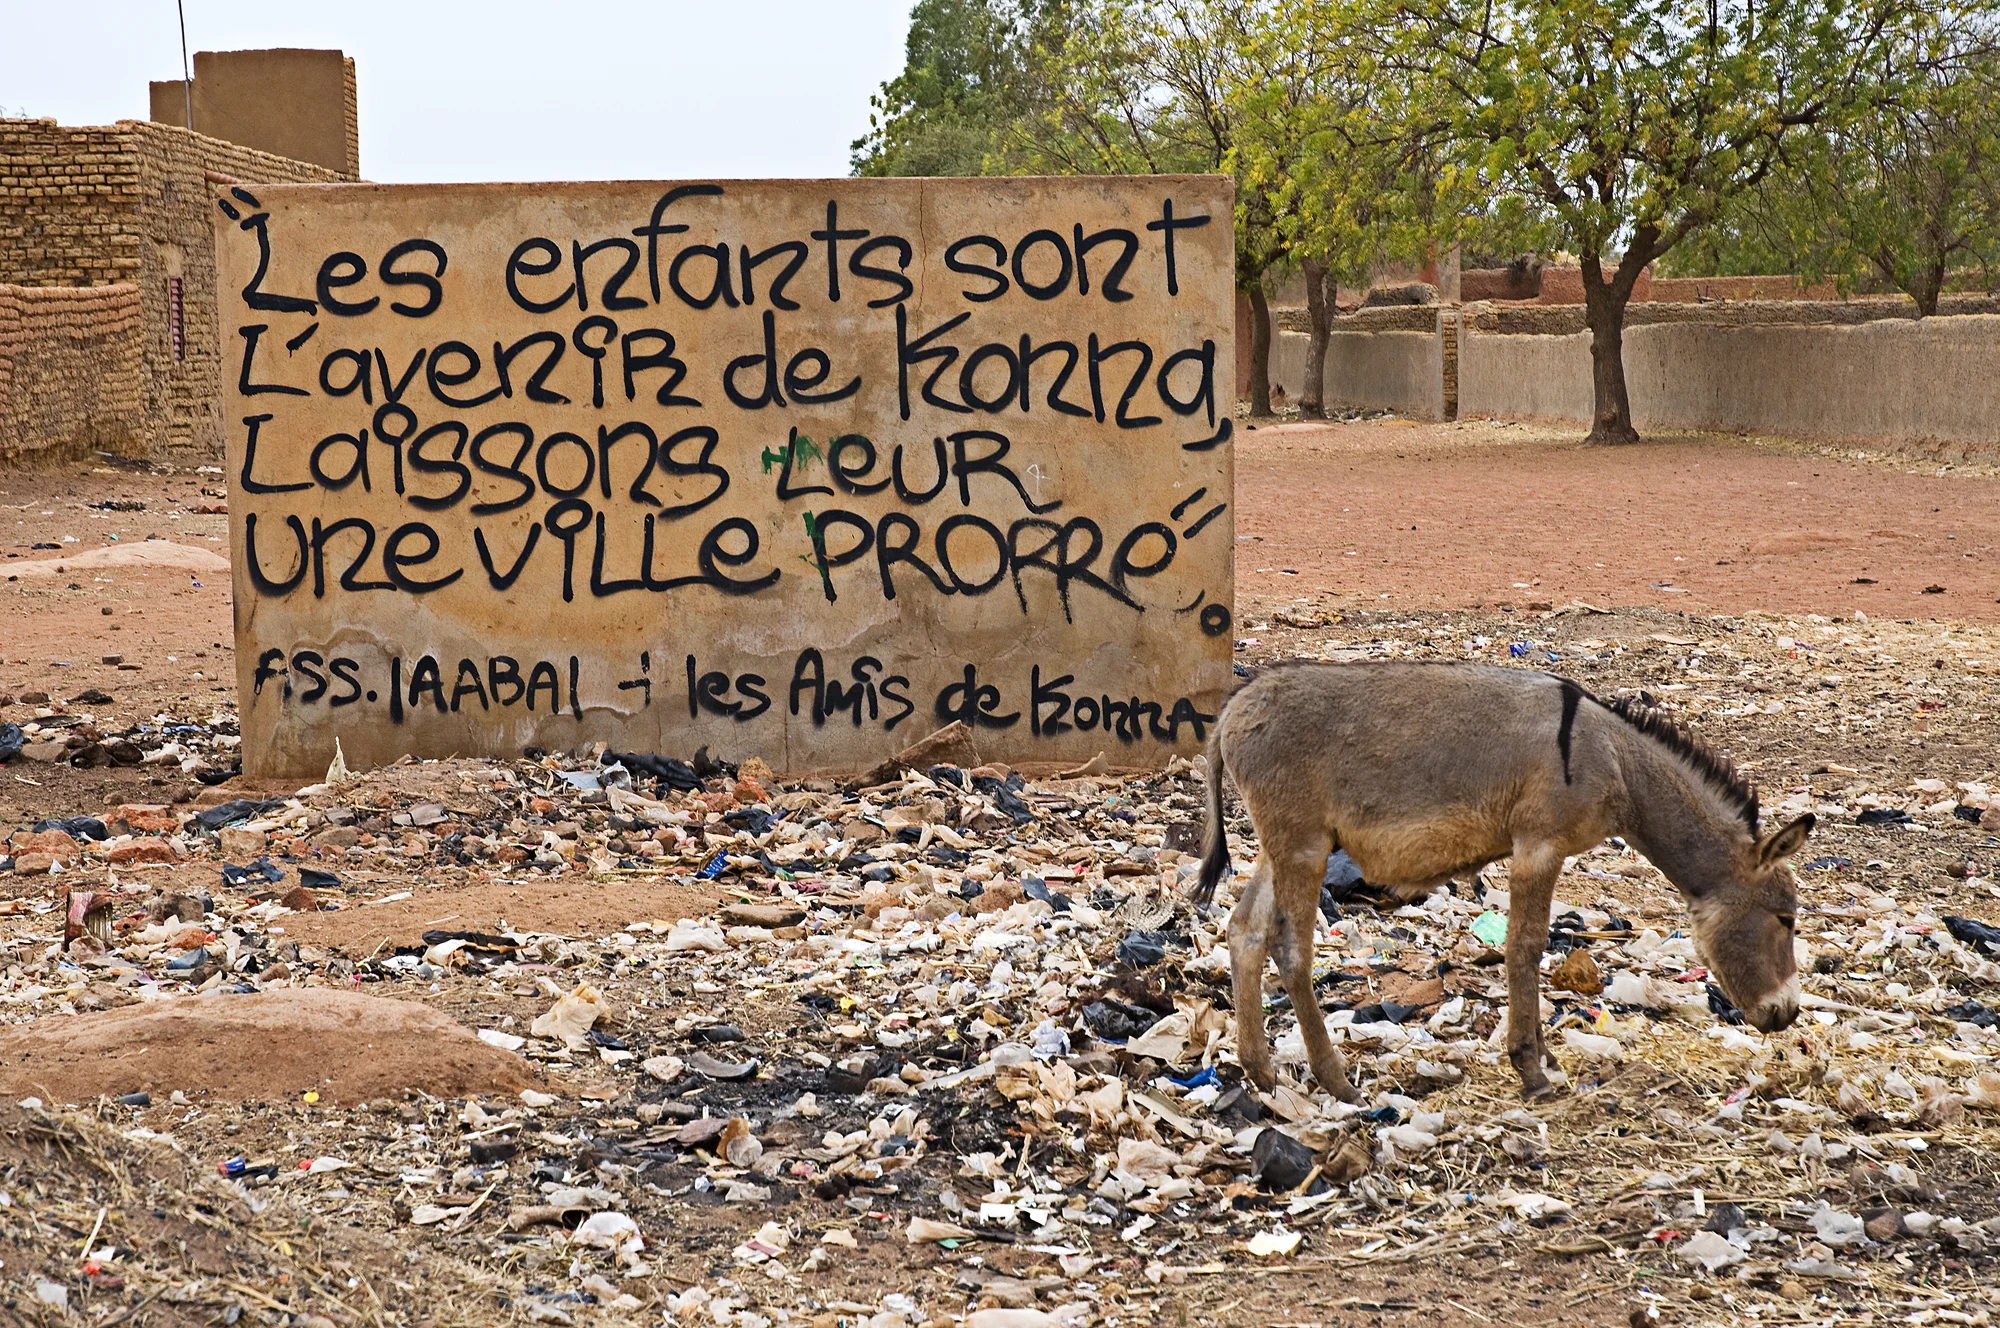 "Les enfants sont
L'avenir de Konna,
Laissons Leur
une ville PROPRe".
ASS. JAABAL + les Amis de Konna